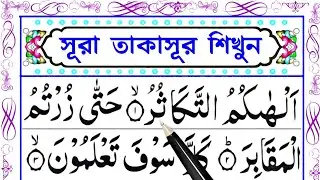 সূরা তাকাসূর শিখুন
اَلْهٰىكُمُ التَّكَاثُرُ ۙ﴿۱﴾ حَتّٰى زُرْتُمُ
الْمَقَابِرَ ؕ﴿۲﴾ كَلَّا سَوْفَ تَعْلَمُوْنَ ۙ﴿۳﴾